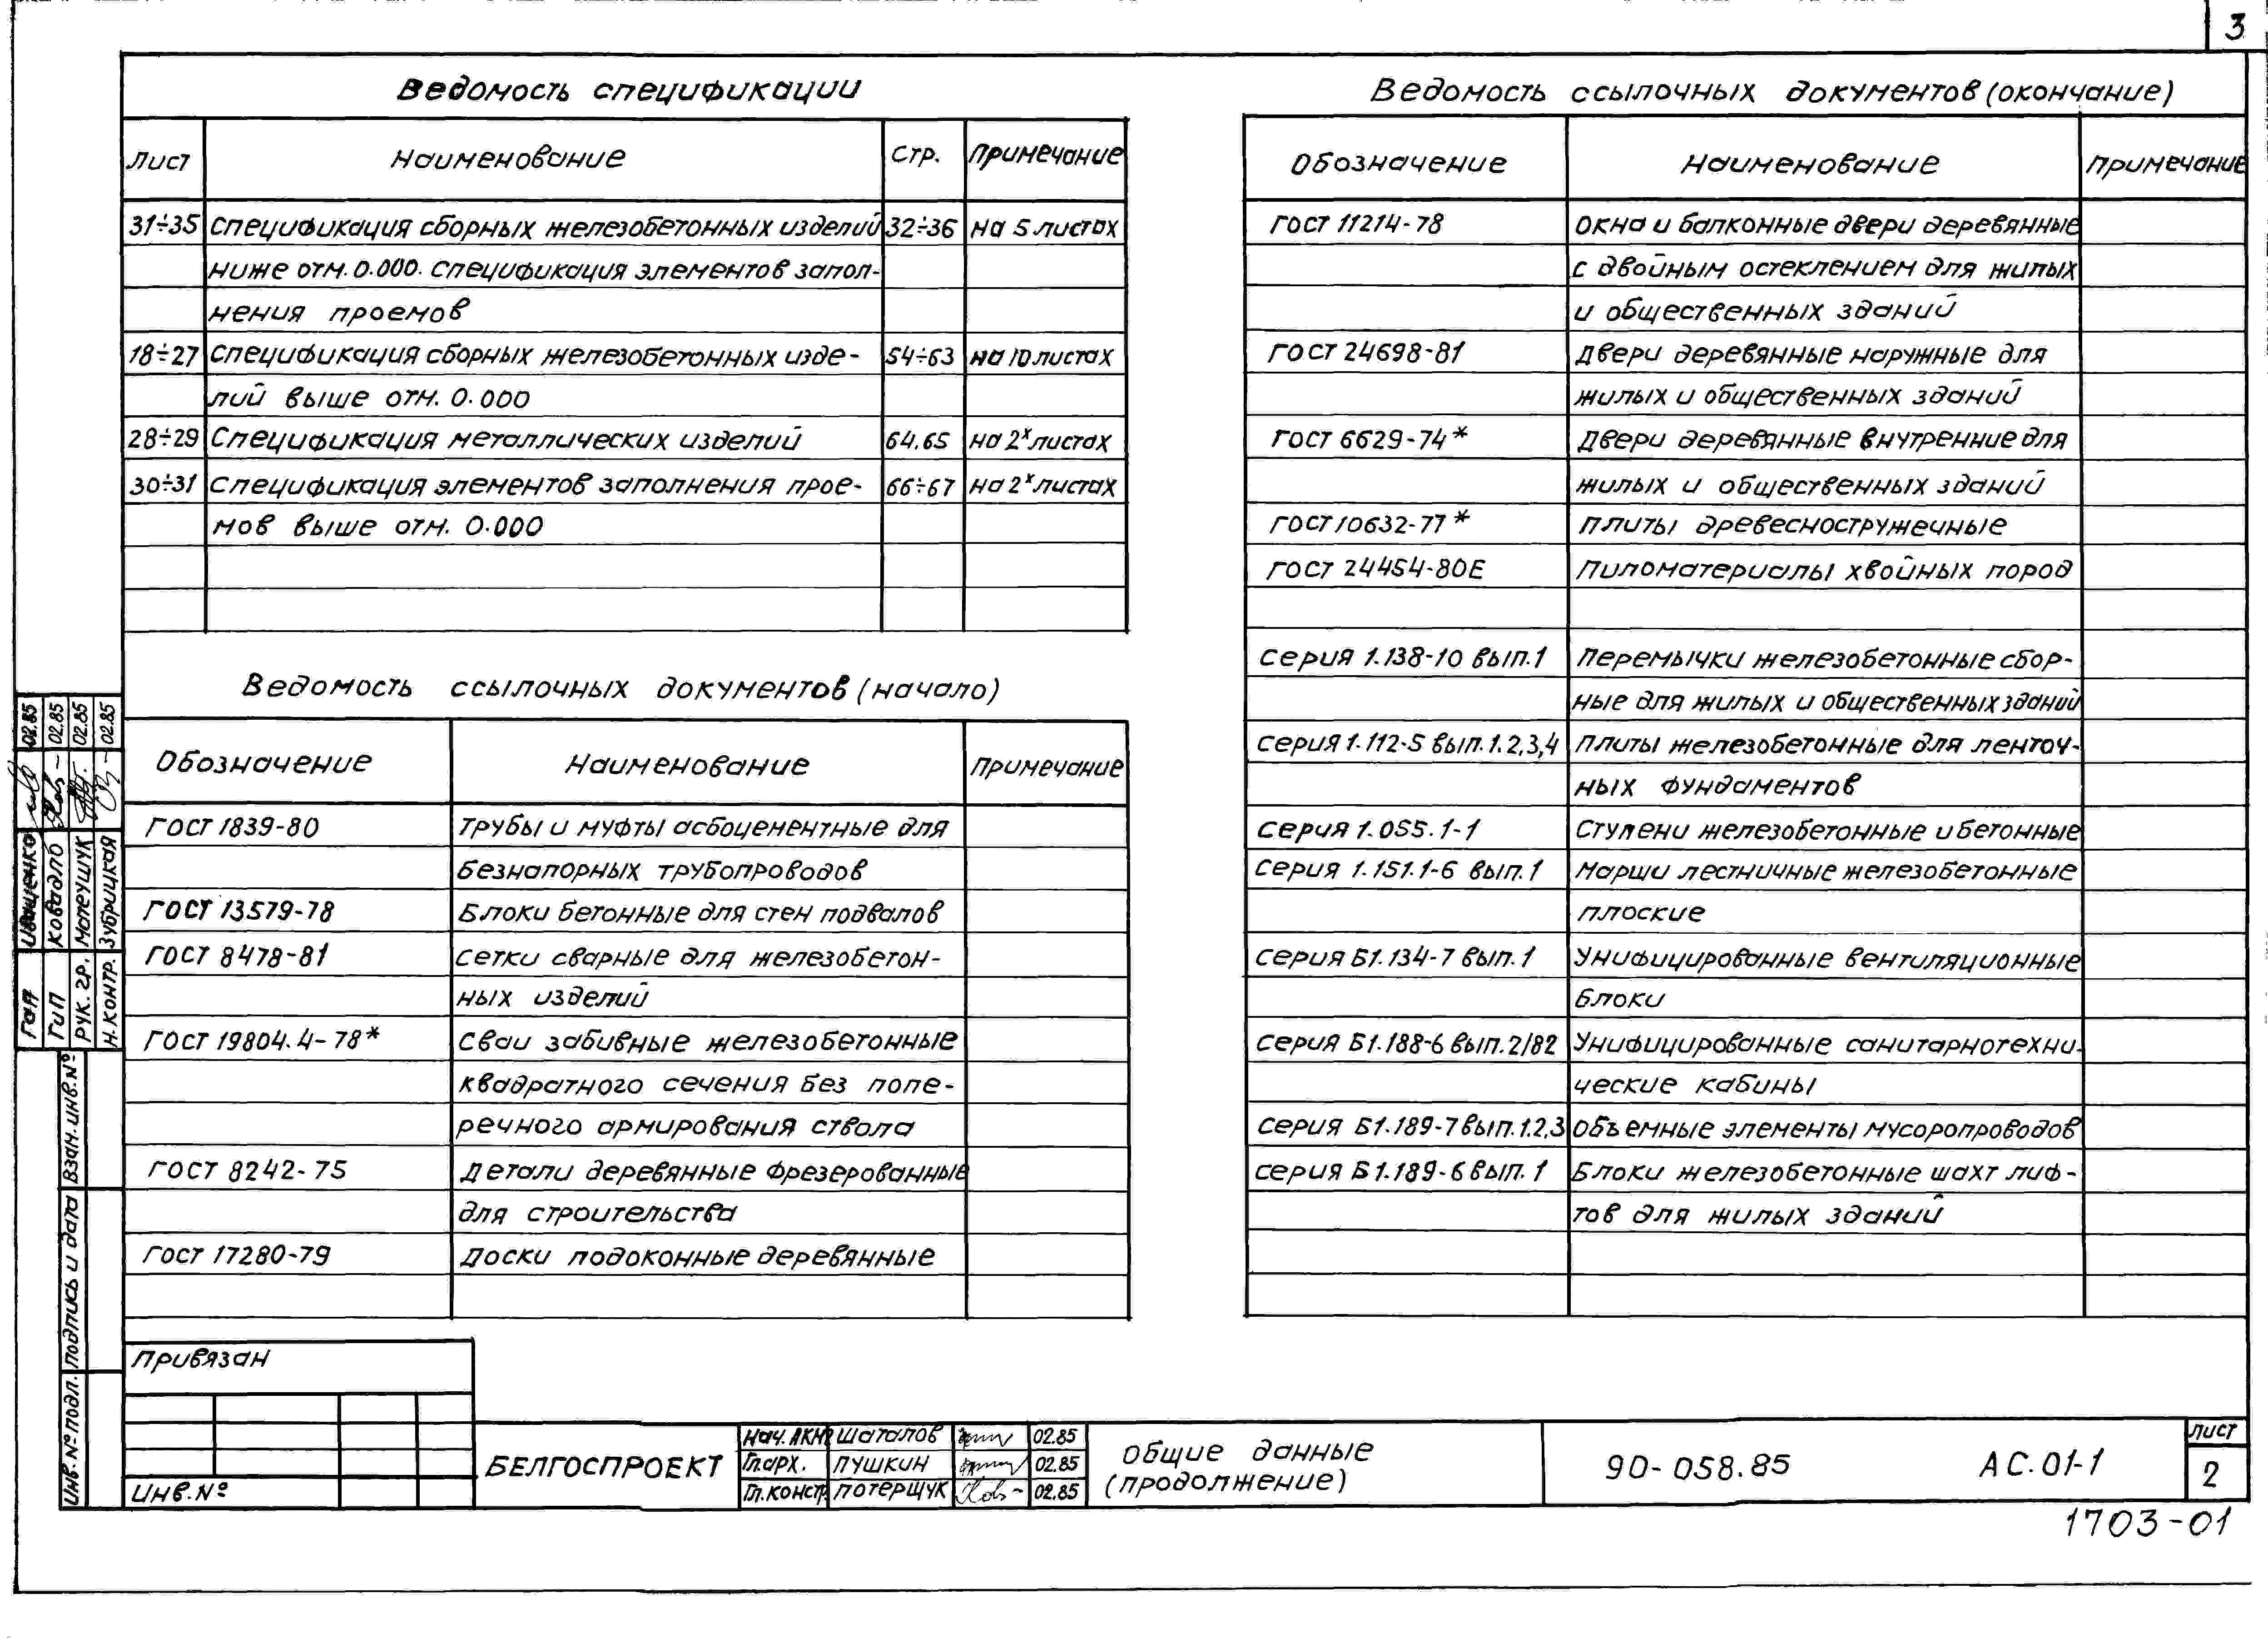 3
Ведомость спецификации
Лист Наименование Стр. Примечание
31÷35 Спецификация сборных железобетонных изделий 32÷36 на 5 листах
ниже отм. 0.000. Спецификация элементов запол-
нения проемов
18÷27 Спецификация сборных железобетонных изде- 54÷63 на 10 листах
лий выше отм. 0.000
28÷29 Спецификация металлических изделий 64.65 на 2х листах
30÷31 Спецификация элементов заполнения прое- 66÷67 на 2х листах
мов выше отм. 0.000
Ведомость ссылочных документов (начало)
Обозначение Наименование Примечание
ГОСТ 1839-80 Трубы и муфты асбоцементные для
безнапорных трубопроводов
ГОСТ 13579-78 Блоки бетонные для стен подвалов
ГОСТ 8478-81 Сетки сварные для железобетон-
ных изделий
ГОСТ 19804.4-78* Сваи забивные железобетонные
квадратного сечения без попе-
речного армирования ствола
ГОСТ 8242-75 Детали деревянные фрезерованные
для строительства
ГОСТ 17280-79 Доски подоконные деревянные
Ведомость ссылочных документов (окончание)
Обозначение Наименование Примечание
ГОСТ 11214-78 Окна и балконные двери деревянные
с двойным остеклением для жилых
и общественных зданий
ГОСТ 24698-81 Двери деревянные наружные для
жилых и общественных зданий
ГОСТ 6629-74* Двери деревянные внутренние для
жилых и общественных зданий
ГОСТ 10632-77* Плиты древесностружечные
ГОСТ 24454-80Е Пиломатериалы хвойных пород
Серия 1.138-10 вып.1 Перемычки железобетонные сбор-
ные для жилых и общественных зданий
Серия 1.112-5 вып.1.2,3,4 Плиты железобетонные для ленточ-
ных фундаментов
Серия 1.055.1-1 Ступени железобетонные и бетонные
Серия 1.151.1-6 вып.1 Марши лестничные железобетонные
плоские
Серия Б1.134-7 вып.1 Унифицированные вентиляционные
блоки
Серия Б1.188-6 вып.2/82 Унифицированные санитарнотехни-
ческие кабины
Серия Б1.189-7 вып.1.2,3 Объемные элементы мусоропроводов
Серия Б1.189-6 вып.1 Блоки железобетонные шахт лиф-
тов для жилых зданий
ГАП Иващенко 02.85
ГИП Ковадло 02.85
Рук. гр. Мопеушук 02.85
Н.контр. Зубрицкая 02.85
Взам.инв.№
Подпись и дата
Инв.№ подл.
Привязан
Инв.№
БЕЛГОСПРОЕКТ
Нач.АКМ2 Шаталов 02.85
Гл.арх. Пушкин 02.85
Гл.констр. Потерщук 02.85
Общие данные
(продолжение)
90-058.85 АС.01-1
Лист
2
1703-01